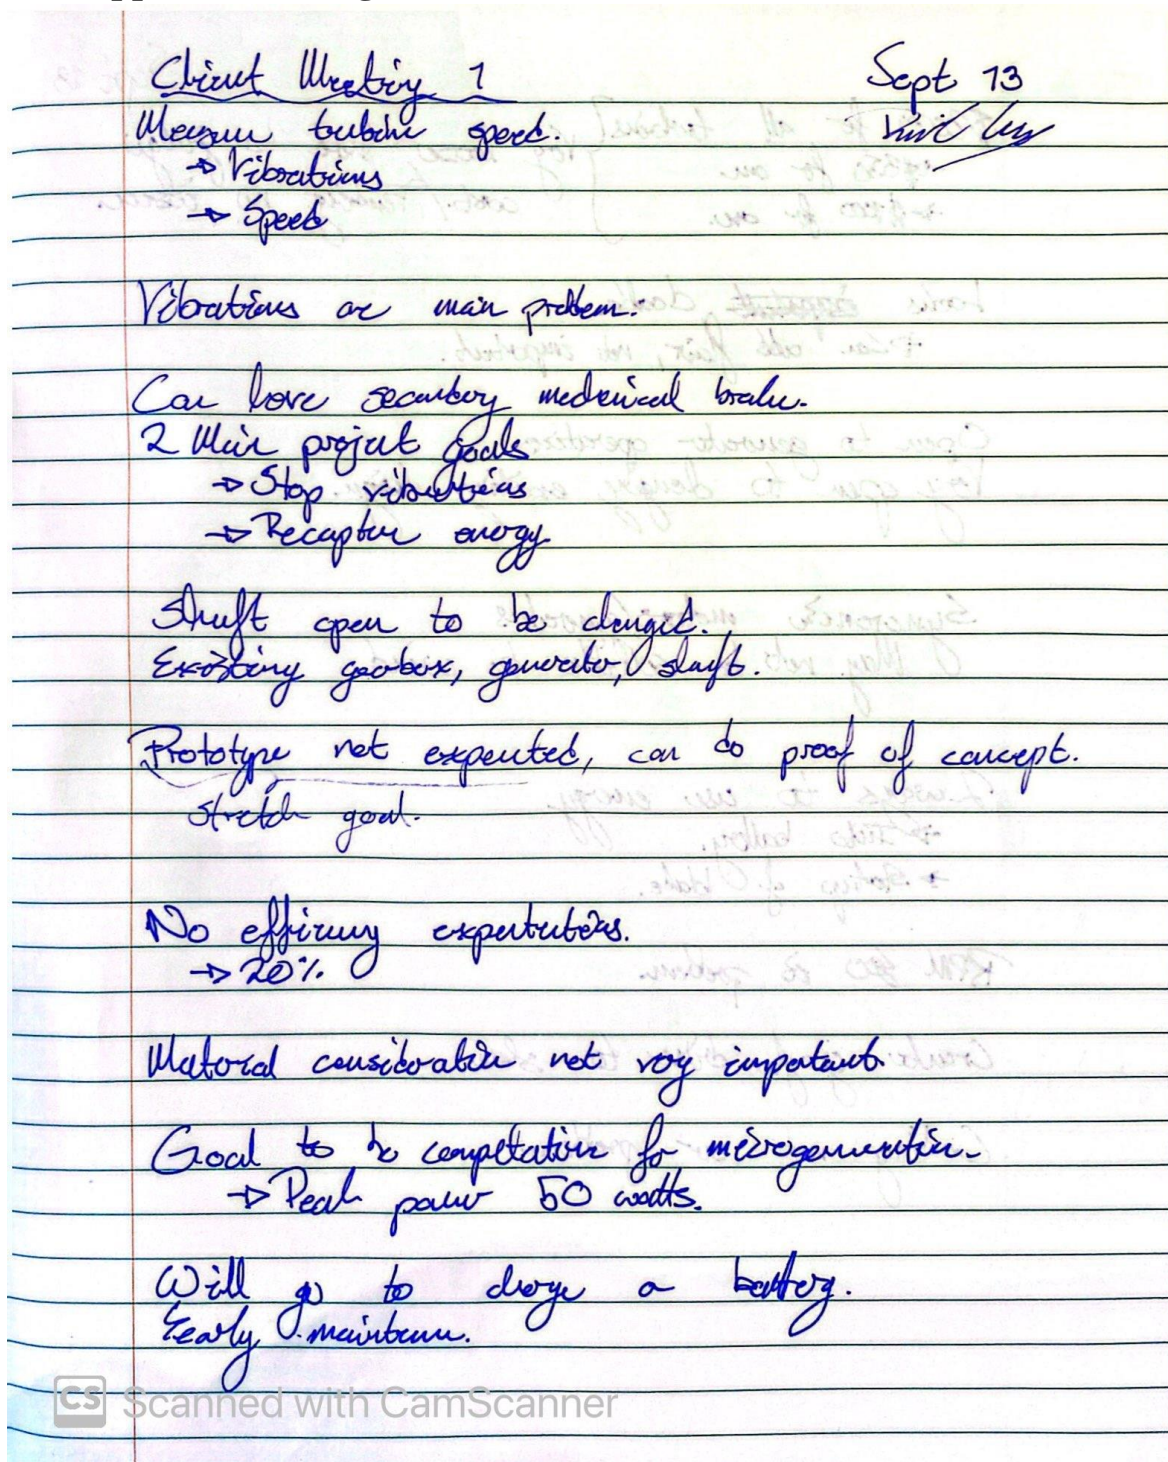 Client Meeting 1
Sept 13
Measure turbine speed.
→ Vibrations
→ Speed
Vibrations are main problem.
Can have secondary mechanical brake.
2 Main project goals
→ Stop vibrations
→ Recapture energy
Shaft open to be changed.
Existing gearbox, generator, shaft.
Prototype not expected, can do proof of concept.
stretch goal.
No efficiency expectations.
→ 20%
Material consideration not very important.
Goal to be competative for microgeneration.
→ Peak power 50 watts.
Will go to charge a battery.
Yearly
CS Scanned with CamScanner